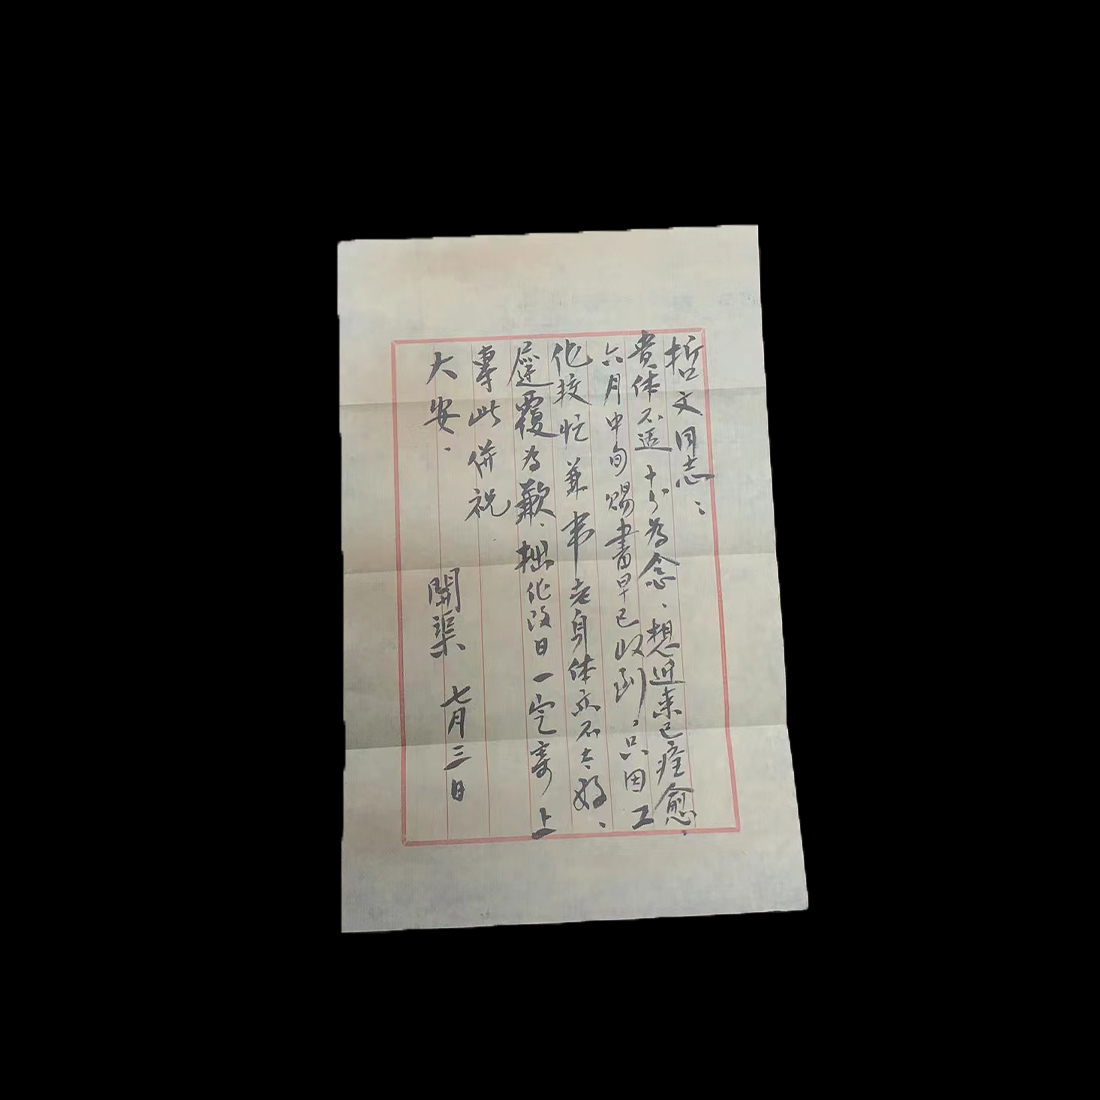 哲文同志：
贵体不适十分为念、想近来已痊愈、
六月中旬赐書早已收到，只因工
作较忙兼老身体亦不太好、
遲覆为歉、拙作改日一定寄上
專此併祝
大安．
開渠 七月三日